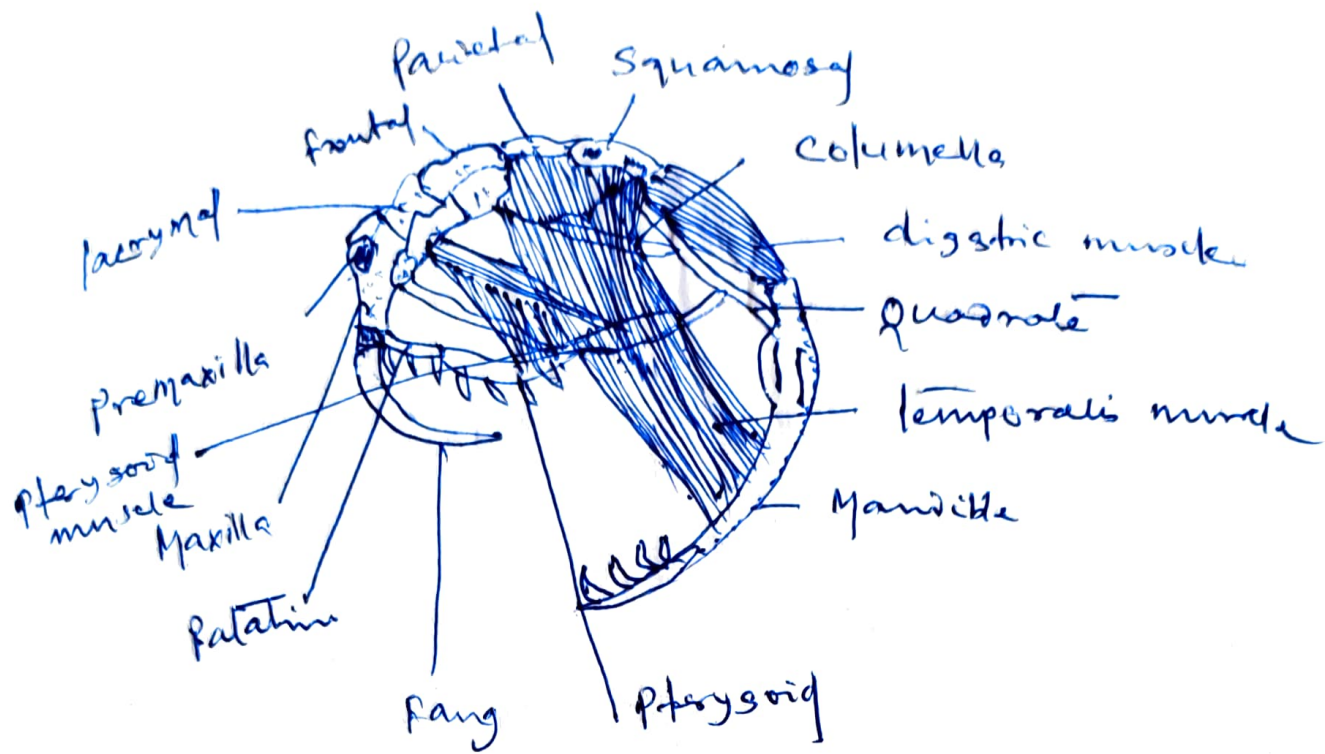 Parietal
Squamosal
frontal
Columella
lacrymal
digastric muscle
Quadrate
Premaxilla
Temporalis muscle
Pterygoid
muscle
Maxilla
Mandible
Palatine
Fang
Pterygoid